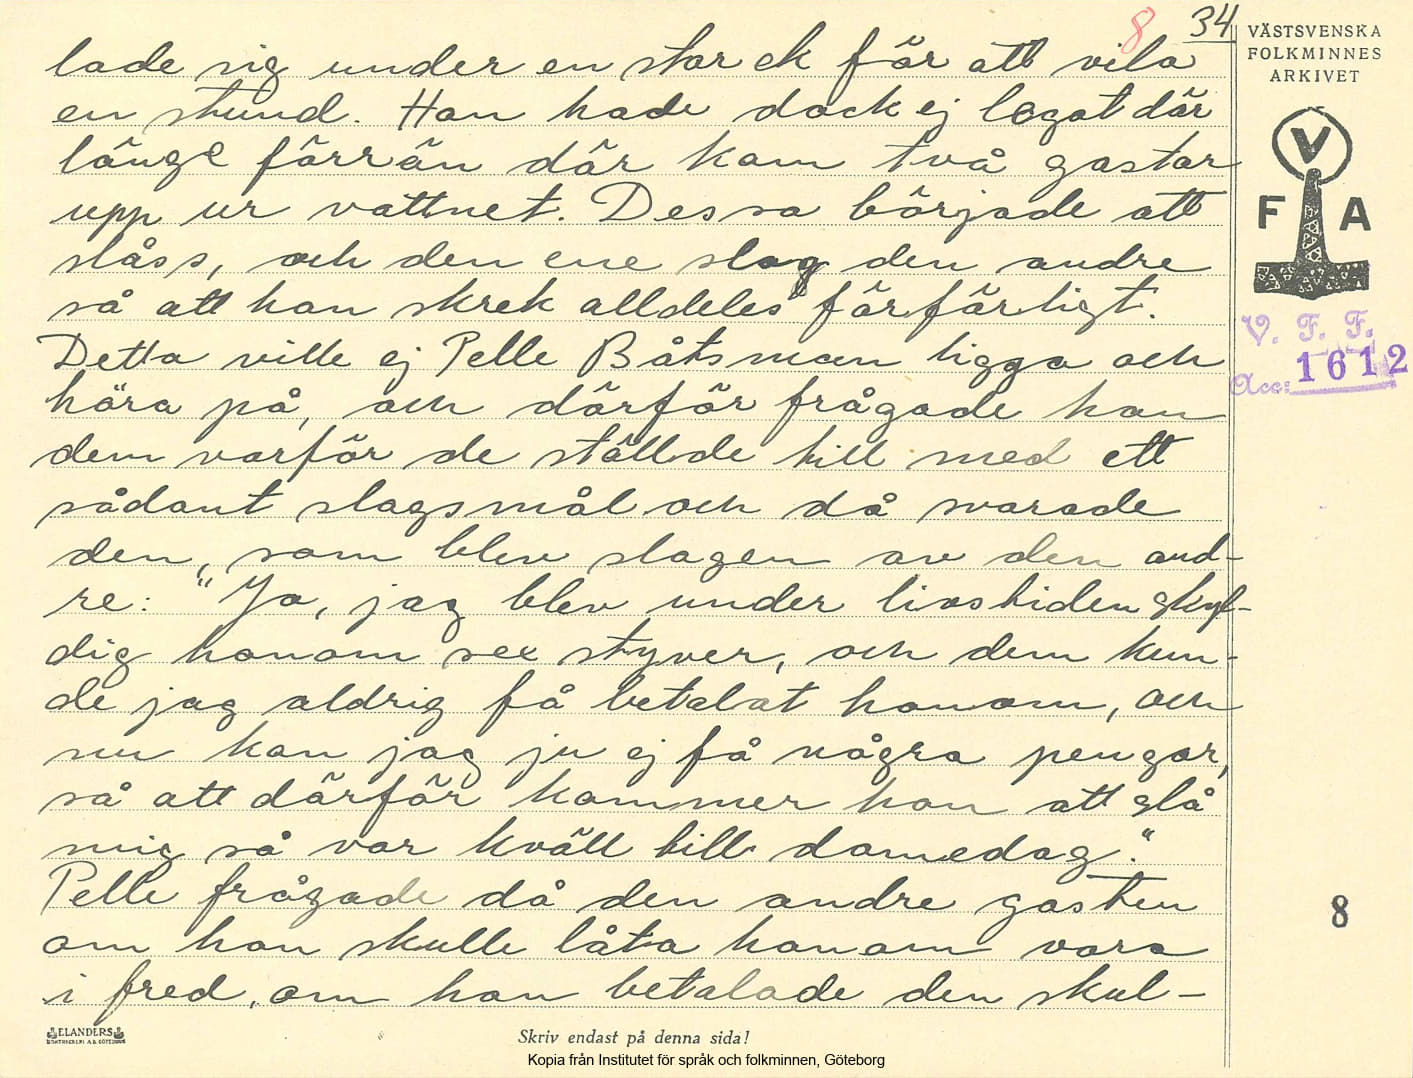 8 34
VÄSTSVENSKA
FOLKMINNES
ARKIVET
V
F A
V. F. F.
Acc: 1612
lade sig under en stor ek för att vila
en stund. Han hade dock ej legat där
länge förrän där kom två gastar
upp ur vattnet. Dessa började att
slåss, och den ene slog den andre
så att han skrek alldeles förfärligt.
Detta ville ej Pelle Båtsman ligga och
höra på, och därför frågade han
dem varför de ställde till med ett
sådant slagsmål och då svarade
den, som blev slagen av den and-
re: "Jo, jag blev under livstiden skyl-
dig honom sex styver, och dem kun-
de jag aldrig få betalat honom, och
nu kan jag ju ej få några pengar,
så att därför kommer han att slå
mig så var kväll till domedag."
Pelle frågade då den andre gasten
om han skulle låta honom vara
i fred, om han betalade den skul-
8
ELANDERS
BOKTRYCKERI A.B. GÖTEBORG
Skriv endast på denna sida!
Kopia från Institutet för språk och folkminnen, Göteborg